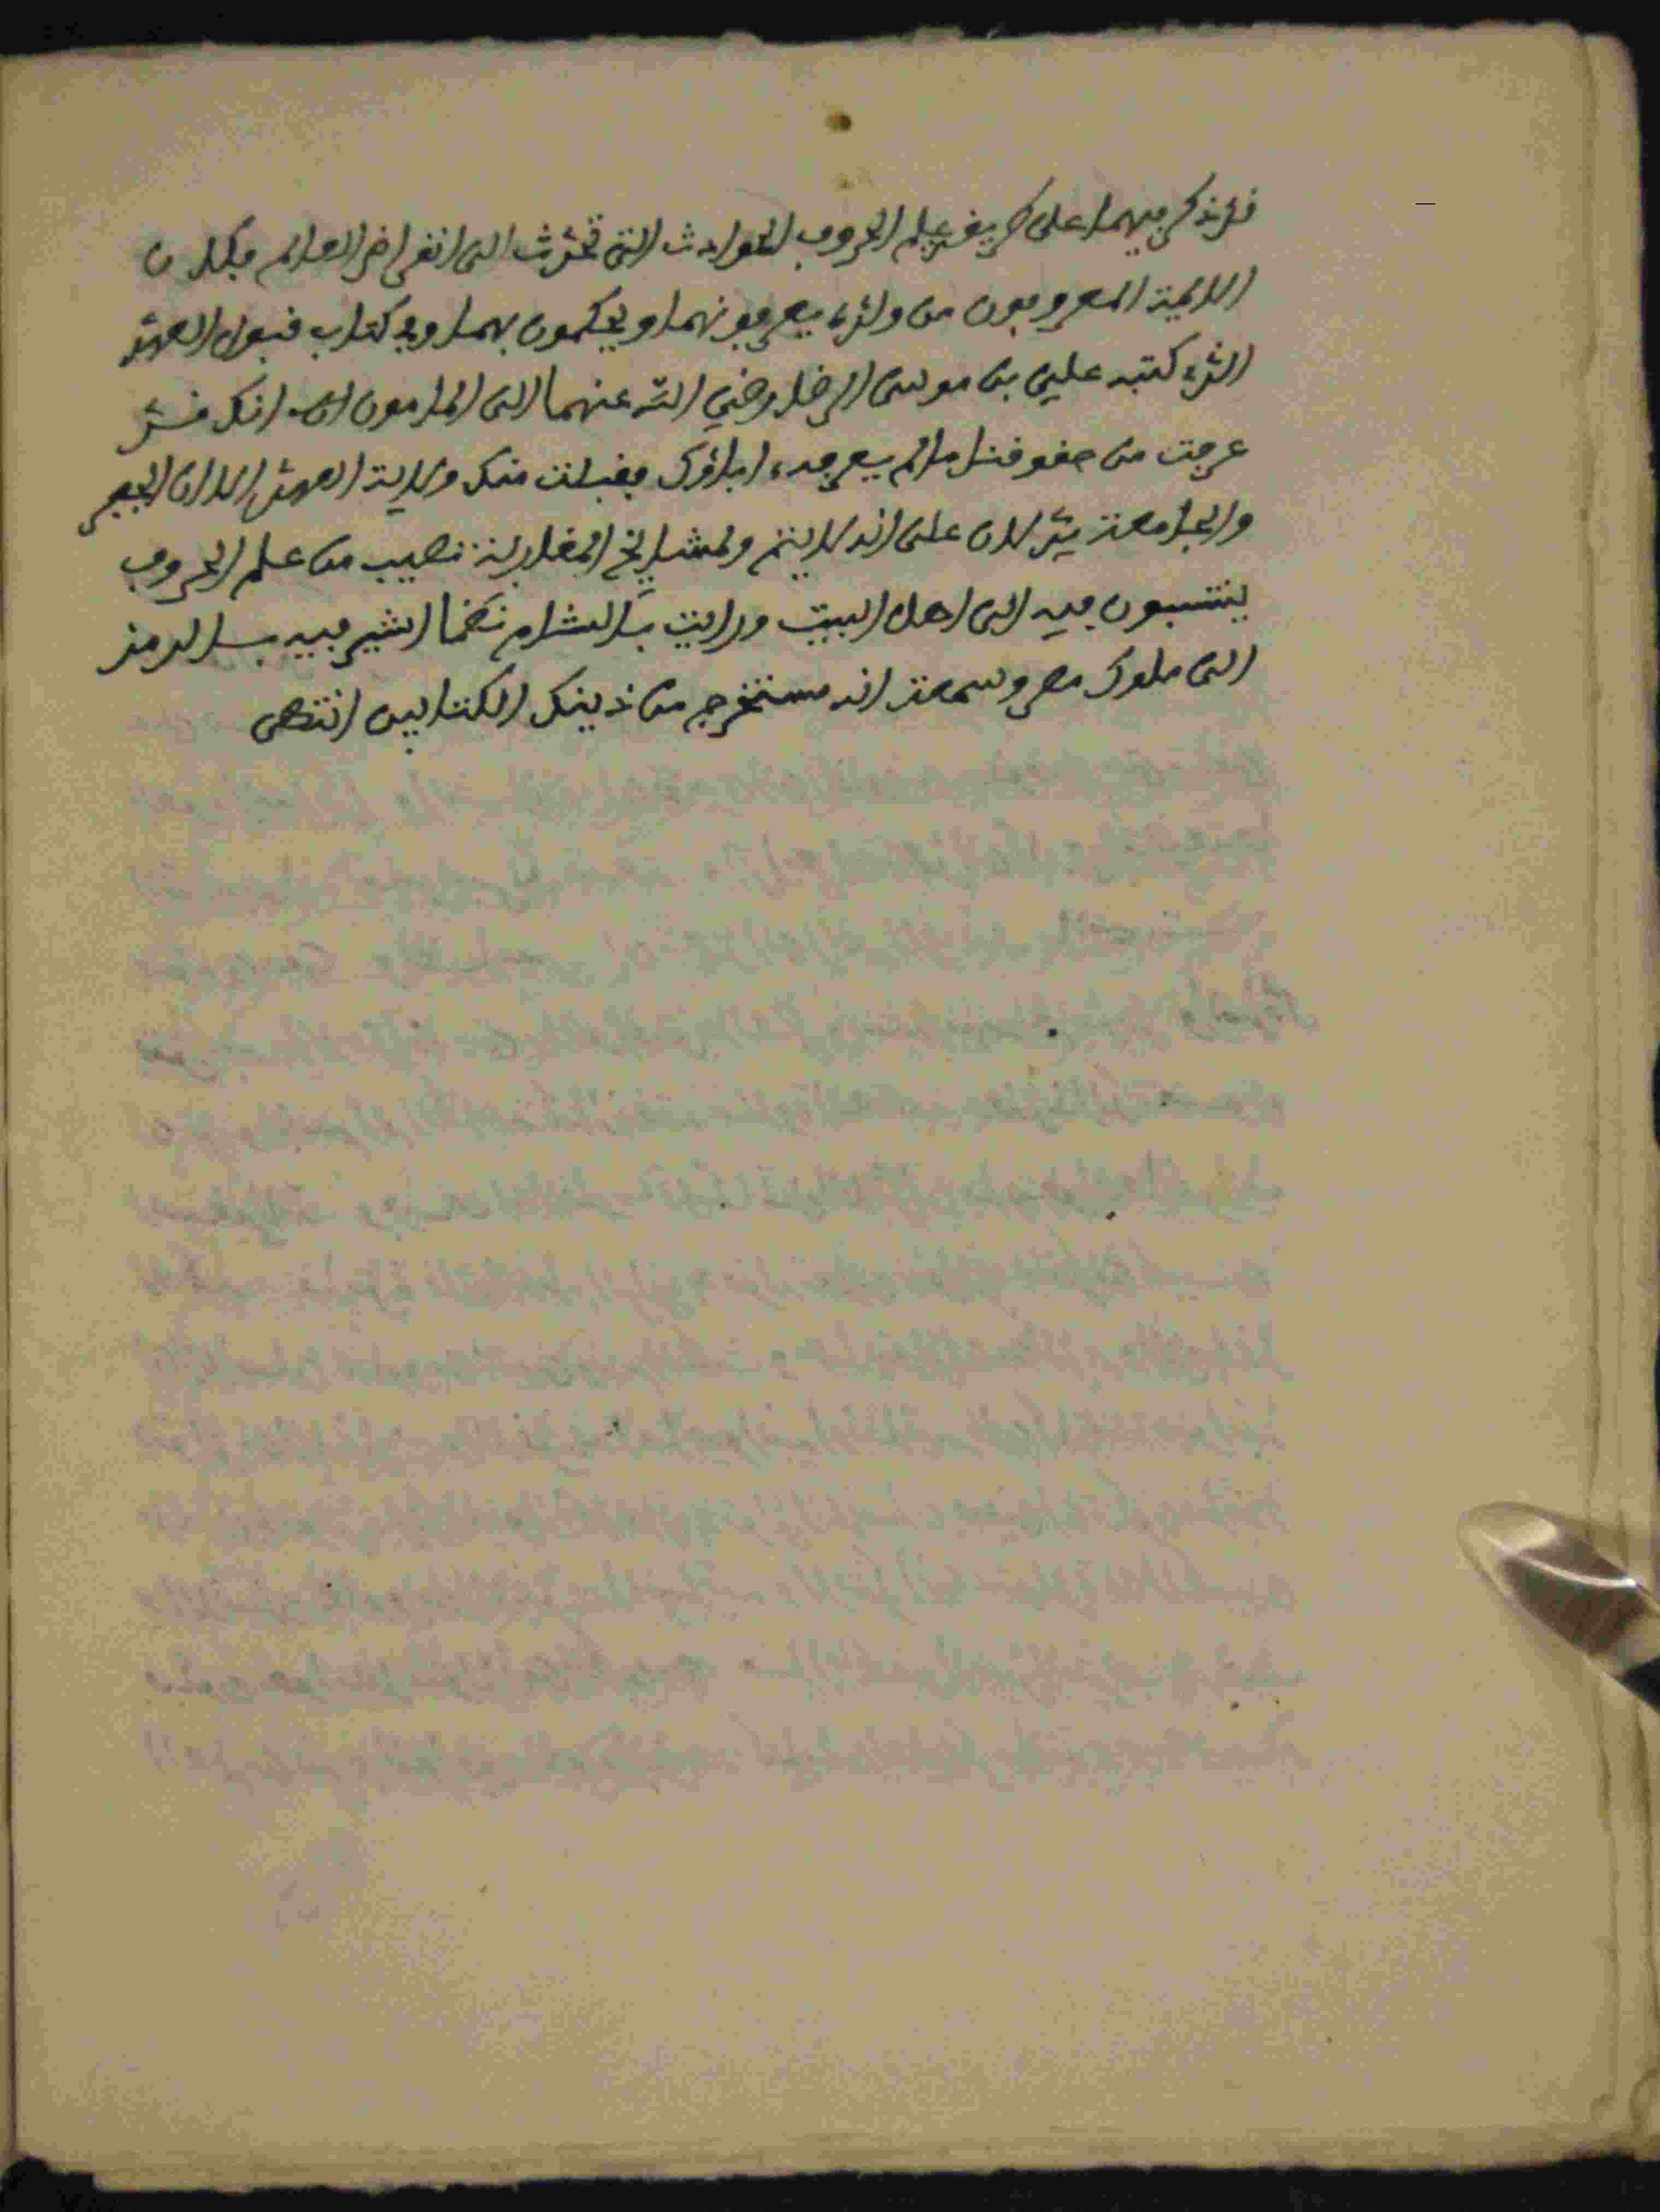 قد ذكر فيهما على طريق علم الحروف الحوادث التي تحدث الى انقراض العالم فكان
الائمة المعروفون من ولده يعرفونهما ويحكمون بهما وفي كتاب قبول العهد
الذي كتبه علي بن موسى الرضا رضي الله عنهما الى المامون انك قد
عرفت من حقوقنا ما لم يعرفه اباؤك فقبلت منك ولاية العهد الا ان الجفر
والجامعة يدلان على انه لا يتم ولمشايخ المغاربة نصيب من علم الحروف
ينتسبون فيه الى اهل البيت ورايت بالشام نظما اشير فيه بالرمز
الى ملوك مصر وسمعت انه مستخرج من ذينك الكتابين انتهى